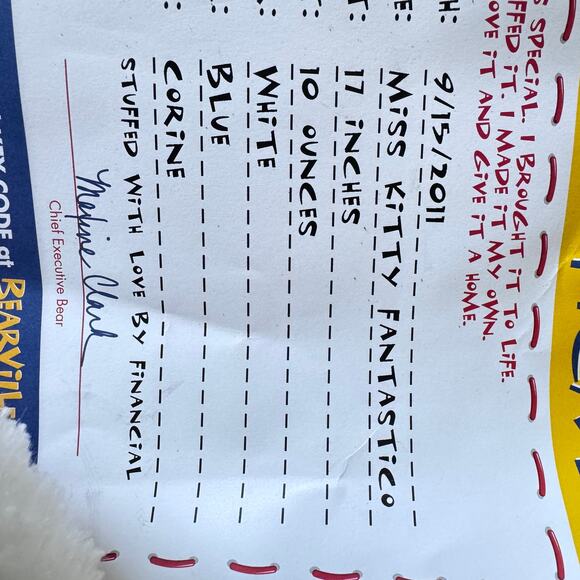 S SPECIAL. I BROUGHT IT TO LIFE.
FFED IT. I MADE IT MY OWN.
OVE IT AND GIVE IT A HOME.
H: 9/15/2011
E: MISS KITTY FANTASTICO
T: 17 INCHES
T: 10 OUNCES
WHITE
BLUE
CORINE
STUFFED WITH LOVE BY FINANCIAL
Maxine Clark
Chief Executive Bear
CODE at BEARVILL